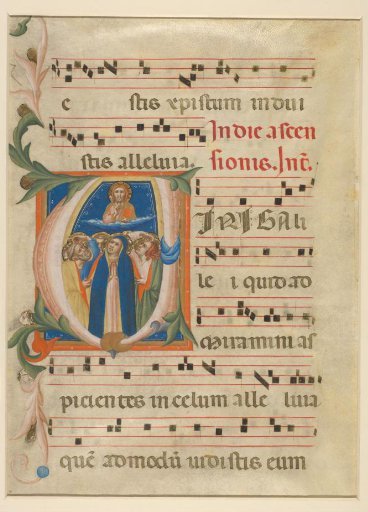 e stis xpistum indui
stis alleluia. In die ascen
sionis. Int̄.
IRI Gali
le i quid ad
miramini as
picientes in celum alle luia
quē admodū uidistis eum